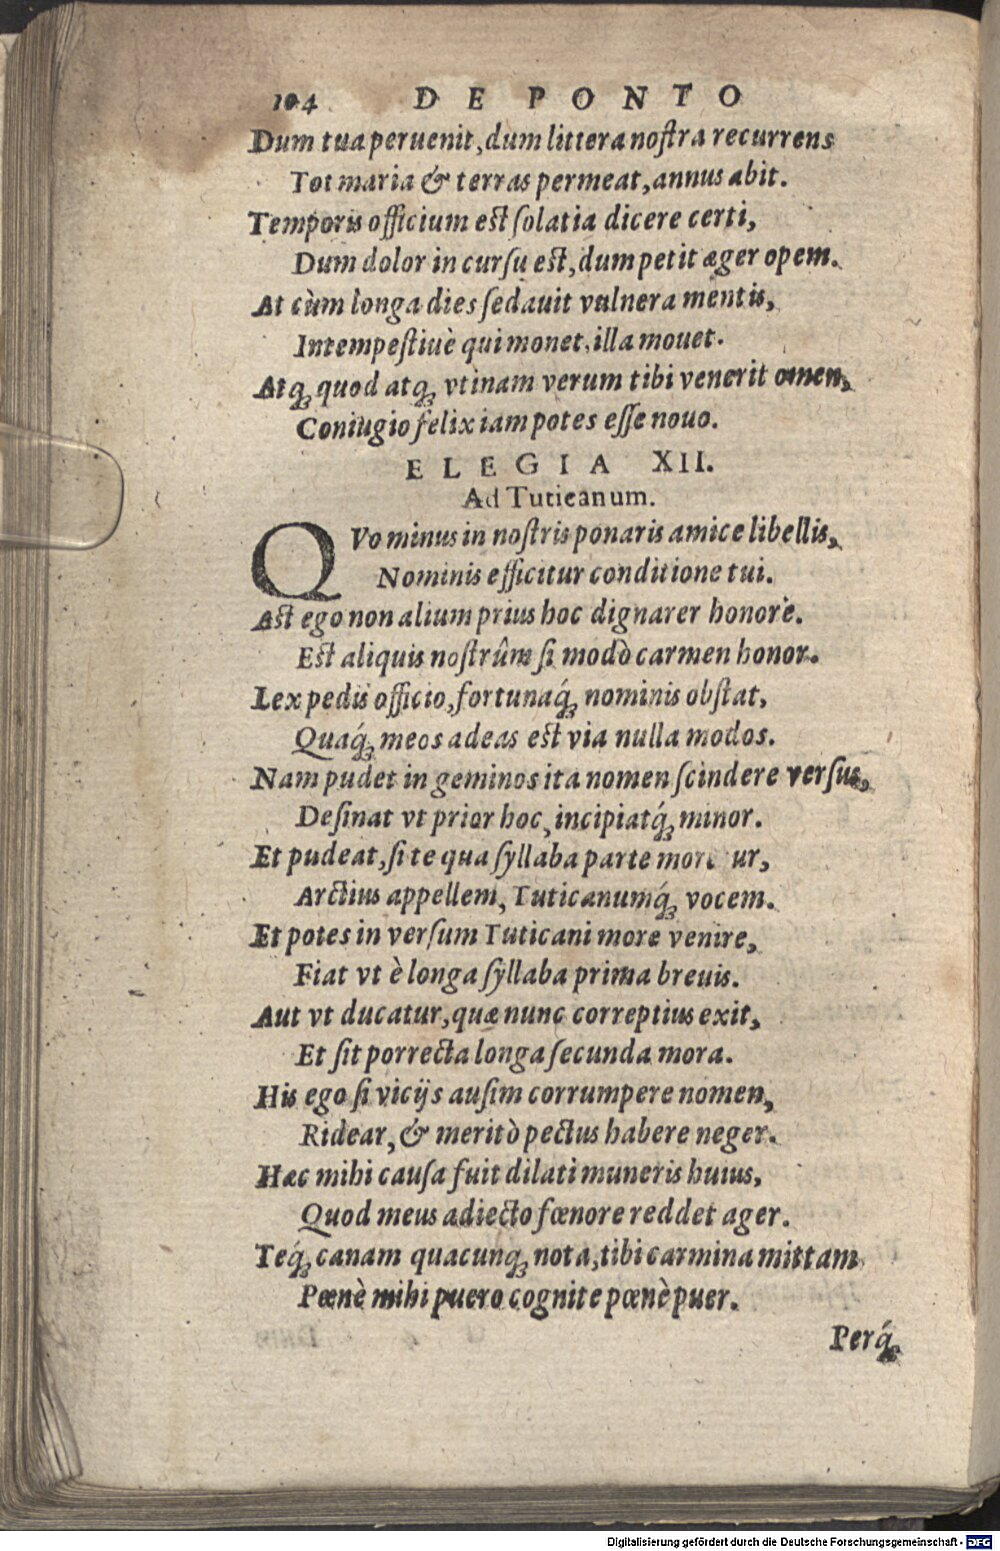 104 DE PONTO
Dum tua peruenit, dum littera noſtra recurrens
Tot maria & terras permeat, annus abit.
Temporis officium est ſolatia dicere certi,
Dum dolor in curſu est, dum petit æger opem.
At cùm longa dies ſedauit vulnera mentis,
Intempeſtiuè qui monet, illa mouet.
Atq; quod atq; vtinam verum tibi venerit omen,
Coniugio felix iam potes eſſe nouo.
ELEGIA XII.
Ad Tuticanum.
QVo minus in noſtris ponaris amice libellis,
Nominis efficitur conditione tui.
Ast ego non alium prius hoc dignarer honore.
Est aliquis noſtrûm ſi modò carmen honor.
Lex pedis officio, fortunaq́; nominis obſtat,
Quaq́; meos adeas est via nulla modos.
Nam pudet in geminos ita nomen ſcindere verſus,
Deſinat vt prior hoc, incipiatq́; minor.
Et pudeat, ſi te qua ſyllaba parte mor ur,
Arctius appellem, Tuticanumq́; vocem.
Et potes in verſum Tuticani more venire,
Fiat vt è longa ſyllaba prima breuis.
Aut vt ducatur, quæ nunc correptius exit,
Et ſit porrecta longa ſecunda mora.
His ego ſi vicijs auſim corrumpere nomen,
Ridear, & meritò pectus habere neger.
Hæc mihi cauſa fuit dilati muneris huius,
Quod meus adiecto fœnore reddet ager.
Teq́; canam quacunq; nota, tibi carmina mittam
Pœnè mihi puero cognite pœnè puer.
Perq́;
Digitalisierung gefördert durch die Deutsche Forschungsgemeinschaft - DFG